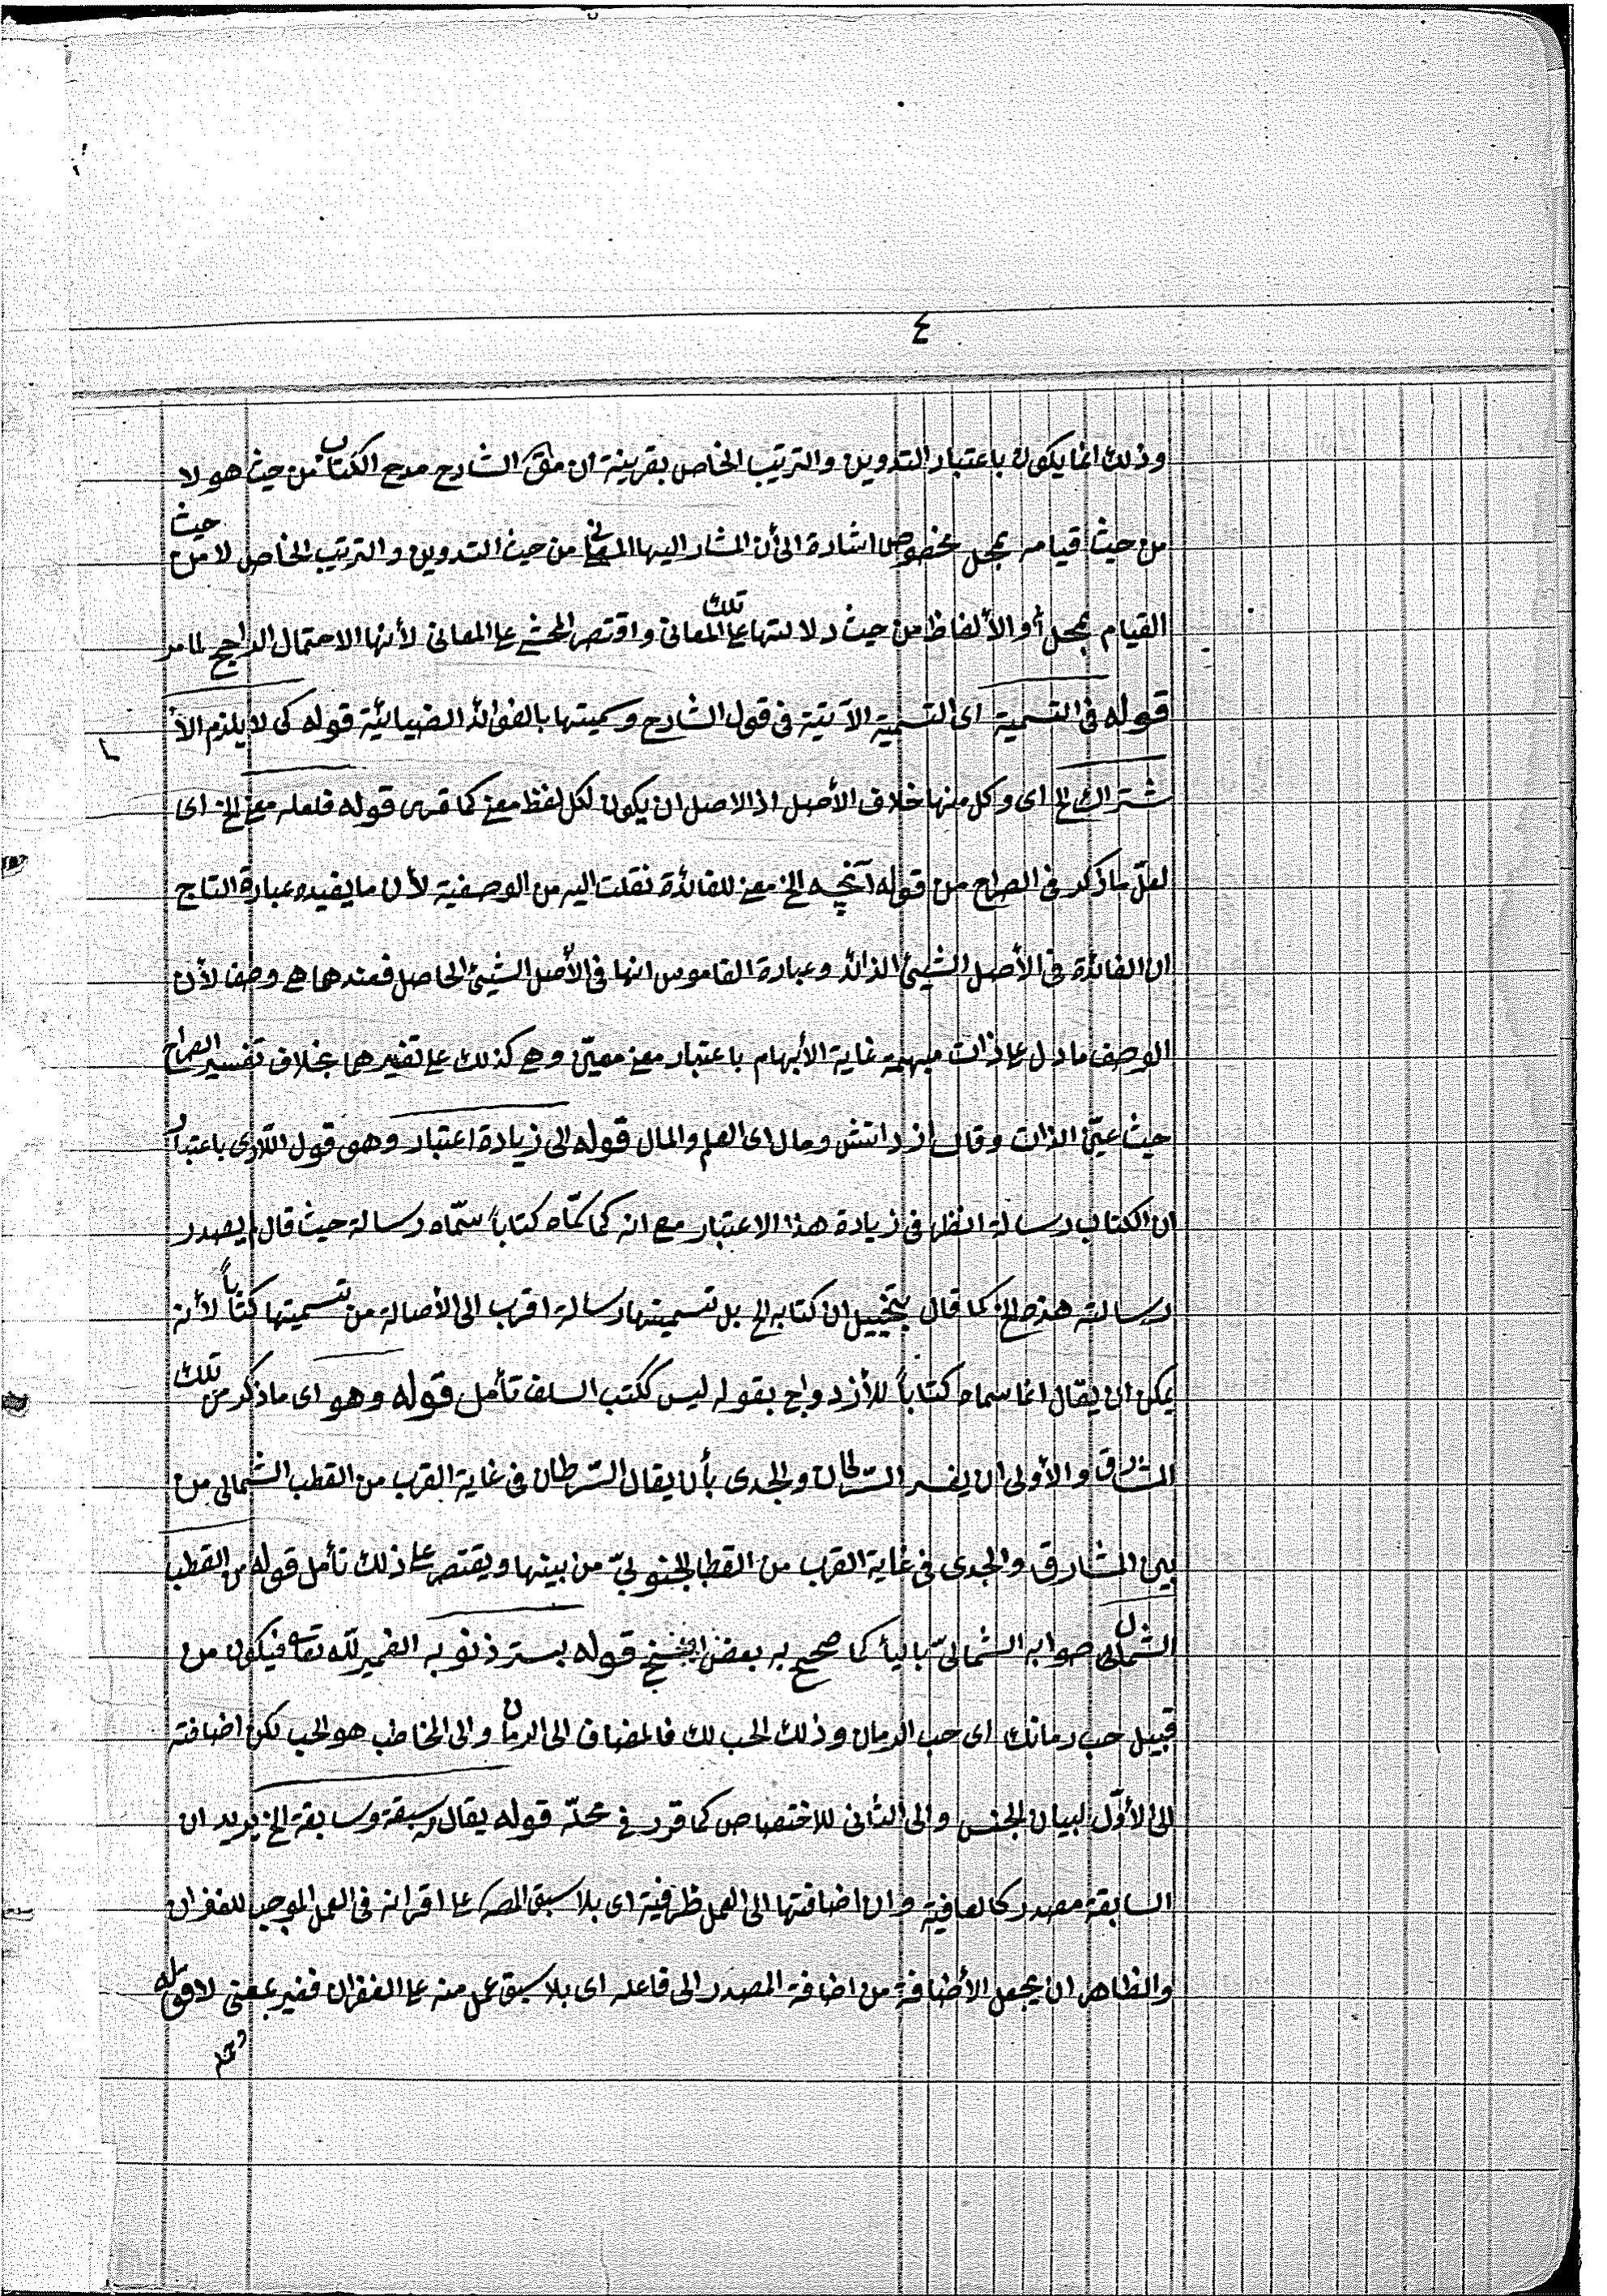 ٤
وذلك انما يكون باعتبار التدوين والترتيب الخاص بقرينة ان الشارح مدح الكتاب من حيث هو لا
من حيث قيامه بمحل مخصوص اشارة الى أن المشار اليها المعانى من حيث التدوين والترتيب الخاص لا من حيث
القيام بمحل أو الألفاظ من حيث دلالتها على تلك المعانى واقتصر المحشى على المعانى لأنها الاحتمال الراجح لما مر
قوله فى التسمية اى التسمية الآتية فى قول الشارح وسميتها بالفوائد الضيائية قوله كى لا يلزم الأ
شتراك الخ اى وكل منها خلاف الأصل اذ الاصل ان يكون لكل لفظ معنى كما قرر قوله فلعله معنى الخ اى
لعلّ ما ذكر فى الصراح من قوله آنچه الخ معنى للفائدة نقلت اليه من الوصفية لأن ما يفيده عبارة التاج
ان الفائدة فى الأصل الشيئ الزائد وعبارة القاموس انها فى الأصل الشيئ الحاصل فعندهما هى وصف لأن
الوصف ما دل على ذات مبهمة غاية الأبهام باعتبار معنى معيّن وهى كذلك على تفسيرهما بخلاف تفسير الصراح
حيث عيّن الذات وقال از دانش ومال اى العلم والمال قوله الى زيادة اعتبار وهو قول اللارى باعتبار
ان الكتاب رسالة انظر فى زيادة هذا الاعتبار مع انه كما سمّاه كتاباً سمّاه رسالة حيث قال لم يصدر
رسالته هذه الخ كما قال بتخييل ان كتابه الخ بل تسميتها رسالة اقرب الى الأصالة من تسميتها كتاباً لأنه
يمكن ان يقال انما سماه كتاباً للأزدواج بقوله ليس ككتب السلف تأمل قوله وهو اى ما ذكر من تلك
المشارق والأولى ان يفسر السرطان والجدى بأن يقال السّرطان فى غاية القرب من القطب الشمالى من
بين المشارق والجدى فى غاية القرب من القطب الجنوبيّ من بينها ويقتصر على ذلك تأمل قوله من القطب
الشمال صوابه الشمالىّ باليأ كما صحح به بعض النسخ قوله بستر ذنوبه الضمير للّه تعا فيكون من
قبيل حب رمانك اى حب الرمان وذلك الحب لك فالمضاف الى الرمان والى المخاطب هو الحب لكن اضافته
الى الأوّل لبيان الجنس والى الثانى للاختصاص كما قرر فى محلّه قوله يقال سبقة وسابقة الخ يريد ان
السابقة مصدر كالعافية وان اضافتها الى العمل ظرفية اى بلا سبق المص على اقرانه فى العمل الموجب للغفران
والظاهر ان يجعل الأضافة من اضافة المصدر الى فاعله اى بلا سبق عمل منه على الغفران فغير بمعنى لا قوله